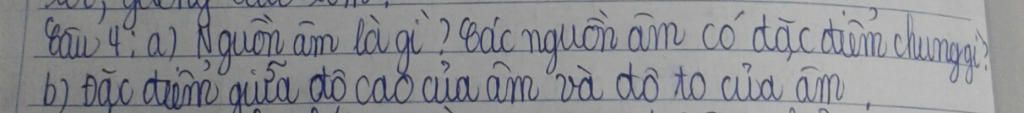 Câu 4: a) Nguồn âm là gì? Các nguồn âm có đặc điểm chung gì?
b) Đặc điểm giữa độ cao của âm và độ to của âm.